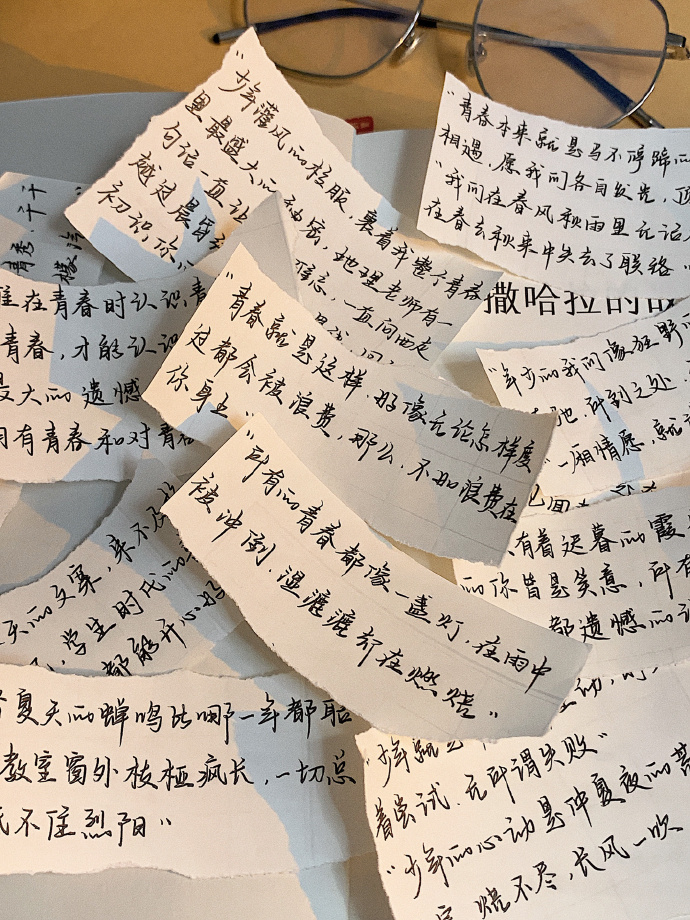 "少年灌风的校服，裹着我整个青春
里最盛大的秘密，地理老师有一
句话一直让
越过晨昏
初识，你
一直向西走
"青春本来就是马不停蹄的
相遇，愿我们各自
"我们在春风秋雨里无话
在春去秋来中失去了联络"
撒哈拉的故
在青春时认识青
青春，才能认识
最大的遗憾
拥有青春和对青春
"青春就是这样，好像无论怎样度
过都会被浪费，那么，不如浪费在
你身上"
"年少的我们像狂野
所到之处
一厢情愿，就
"所有的青春都像一盏灯，在雨中
被冲倒，湿漉漉却在燃烧"
有着迟暮的霞
的你皆是笑意，所有
都遗憾的
的文案，来不及
学生时代的
都能开心
夏天的蝉鸣比哪一年都聒
教室窗外枝桠疯长，一切总
不住烈阳"
"少年就
着尝试，无所谓失败"
"少年的心动是仲夏夜的荒
烧不尽，长风一吹